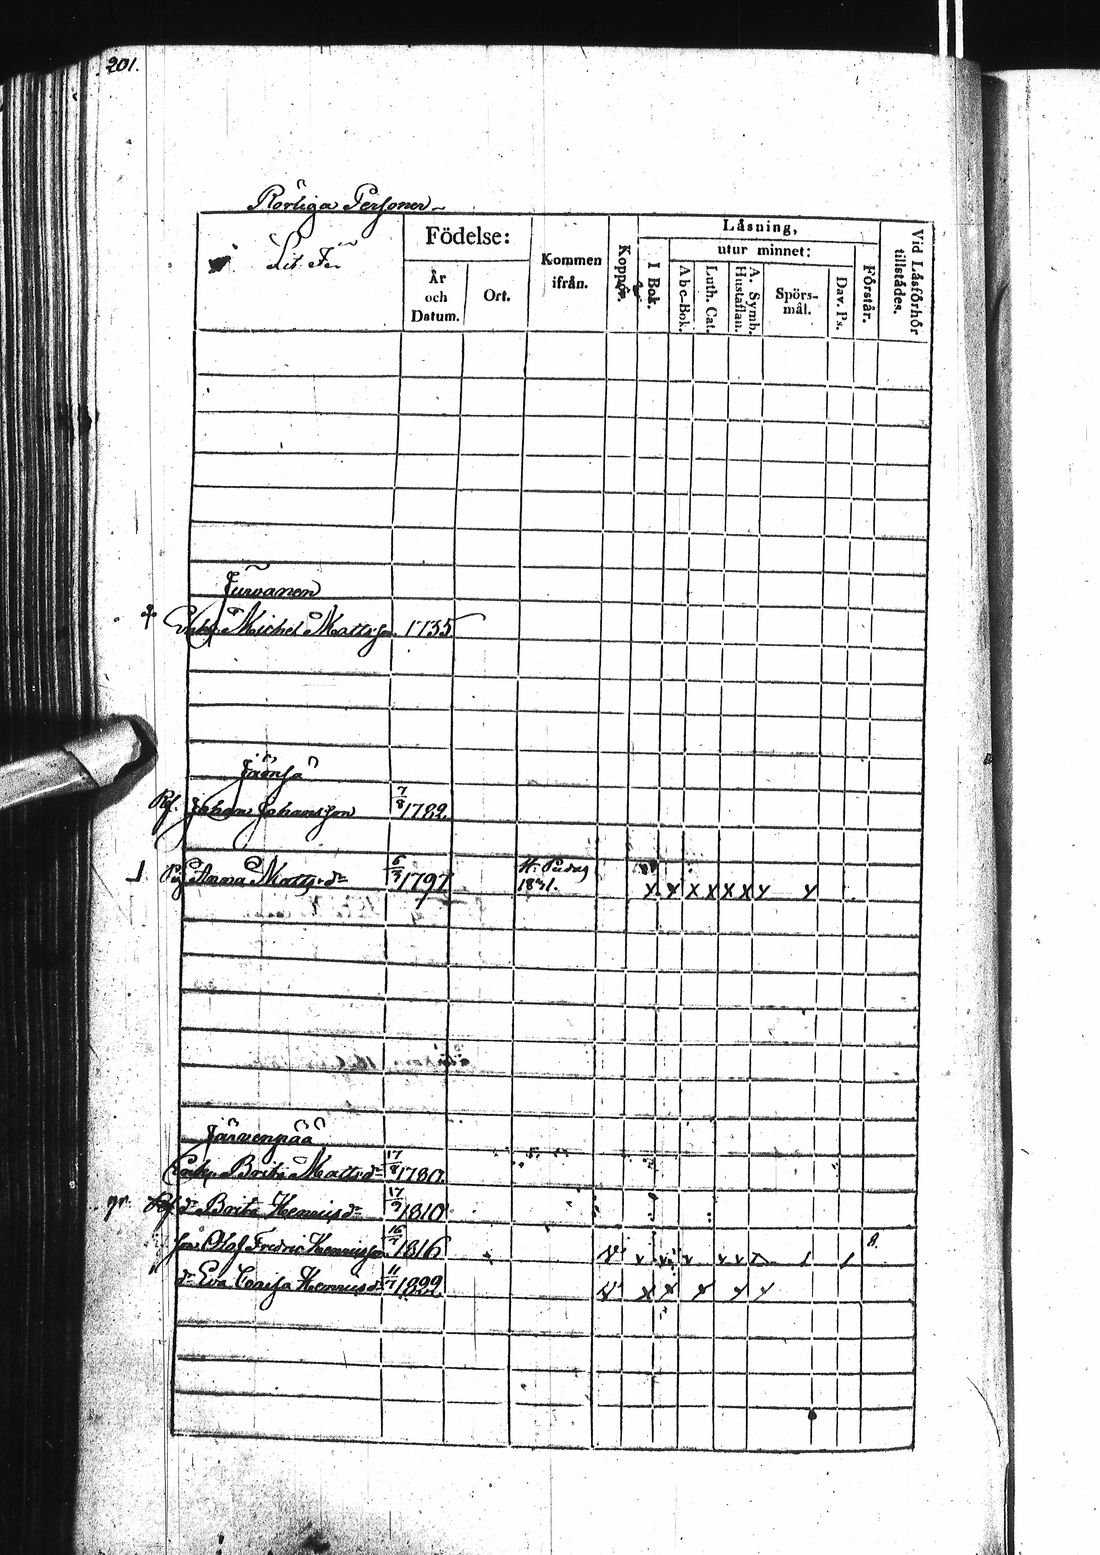 201.
Rörliga Personer
Litt
Födelse:
År och Datum.
Ort.
Kommen ifrån.
Koppor.
Läsning,
I Bok.
utur minnet:
Abc-Bok.
Luth. Cat.
A. Symb. Hustaflan.
Spörs-mål.
Dav. Ps.
Förstår.
Vid Läsförhör tillstädes.
Jurvanen
Enkl. Michel Mattsson 1735
Jämsä
Johan Johansson 7/8 1782.
Pig Anna Mattsdr 6/3 1797 H: Pudas 1831. x x x x x x x x
Järvenpää
Enka Brita Mattsdr 17/8 1780.
gv. dr Brita Henricsdr 17/9 1810
son Olof Fredric Henricsson 16/7 1816 v x x x x x
dr Eva Caisa Henricsdr 11/7 1822. v x x x x x